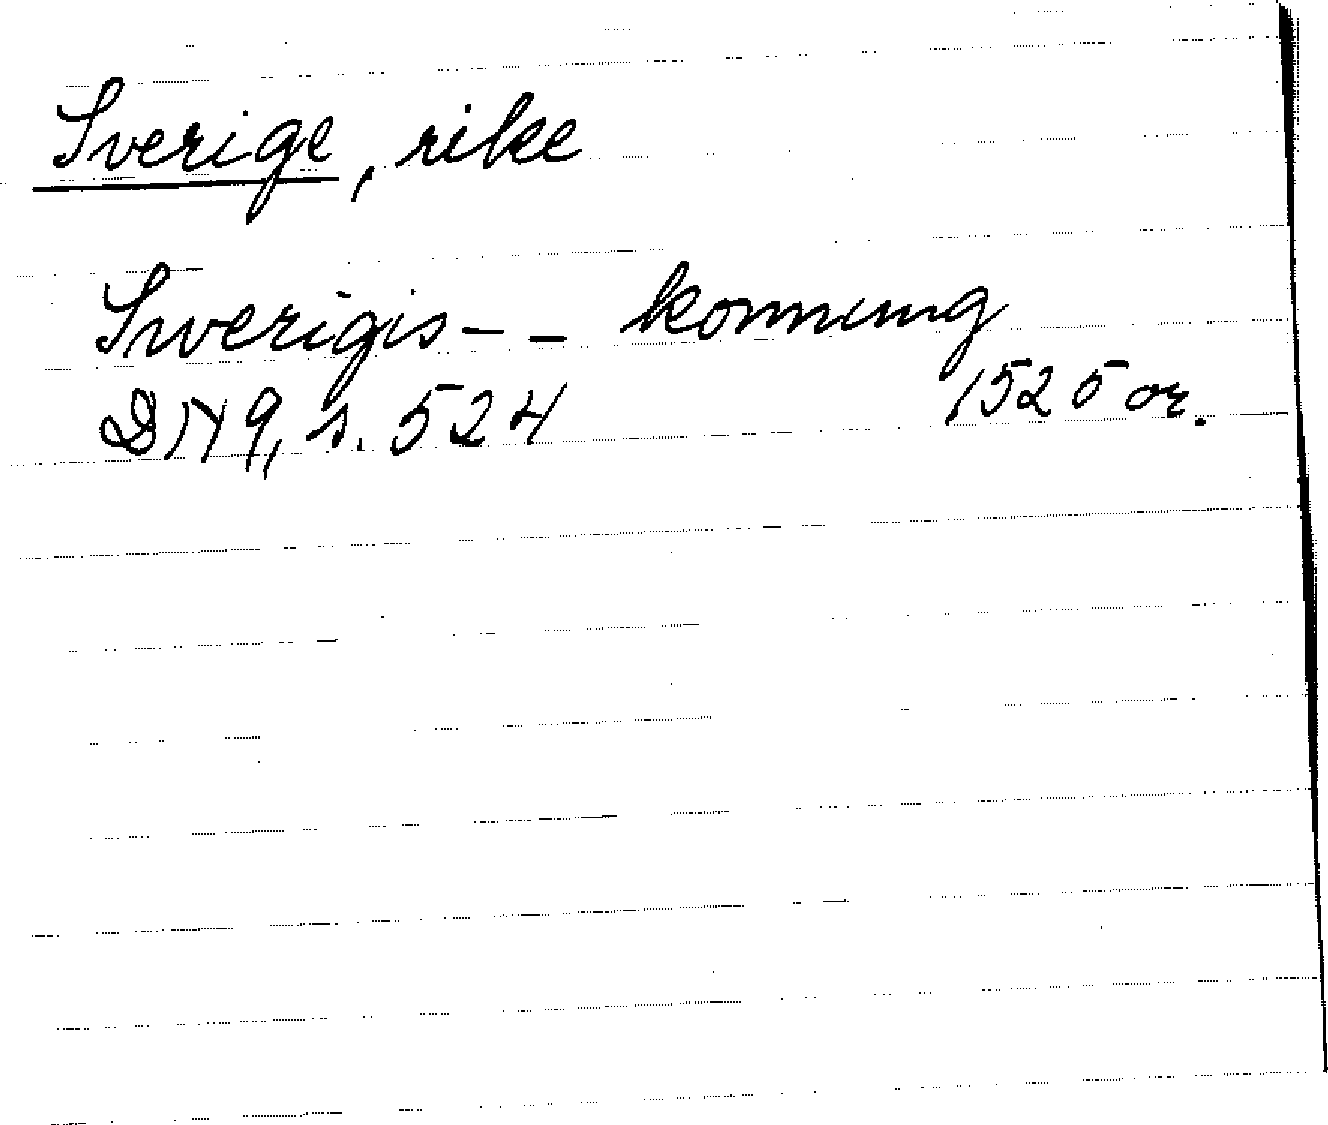 Sverige, rike
Swerigis - - konnung
DN 9, s. 524 1525 or.